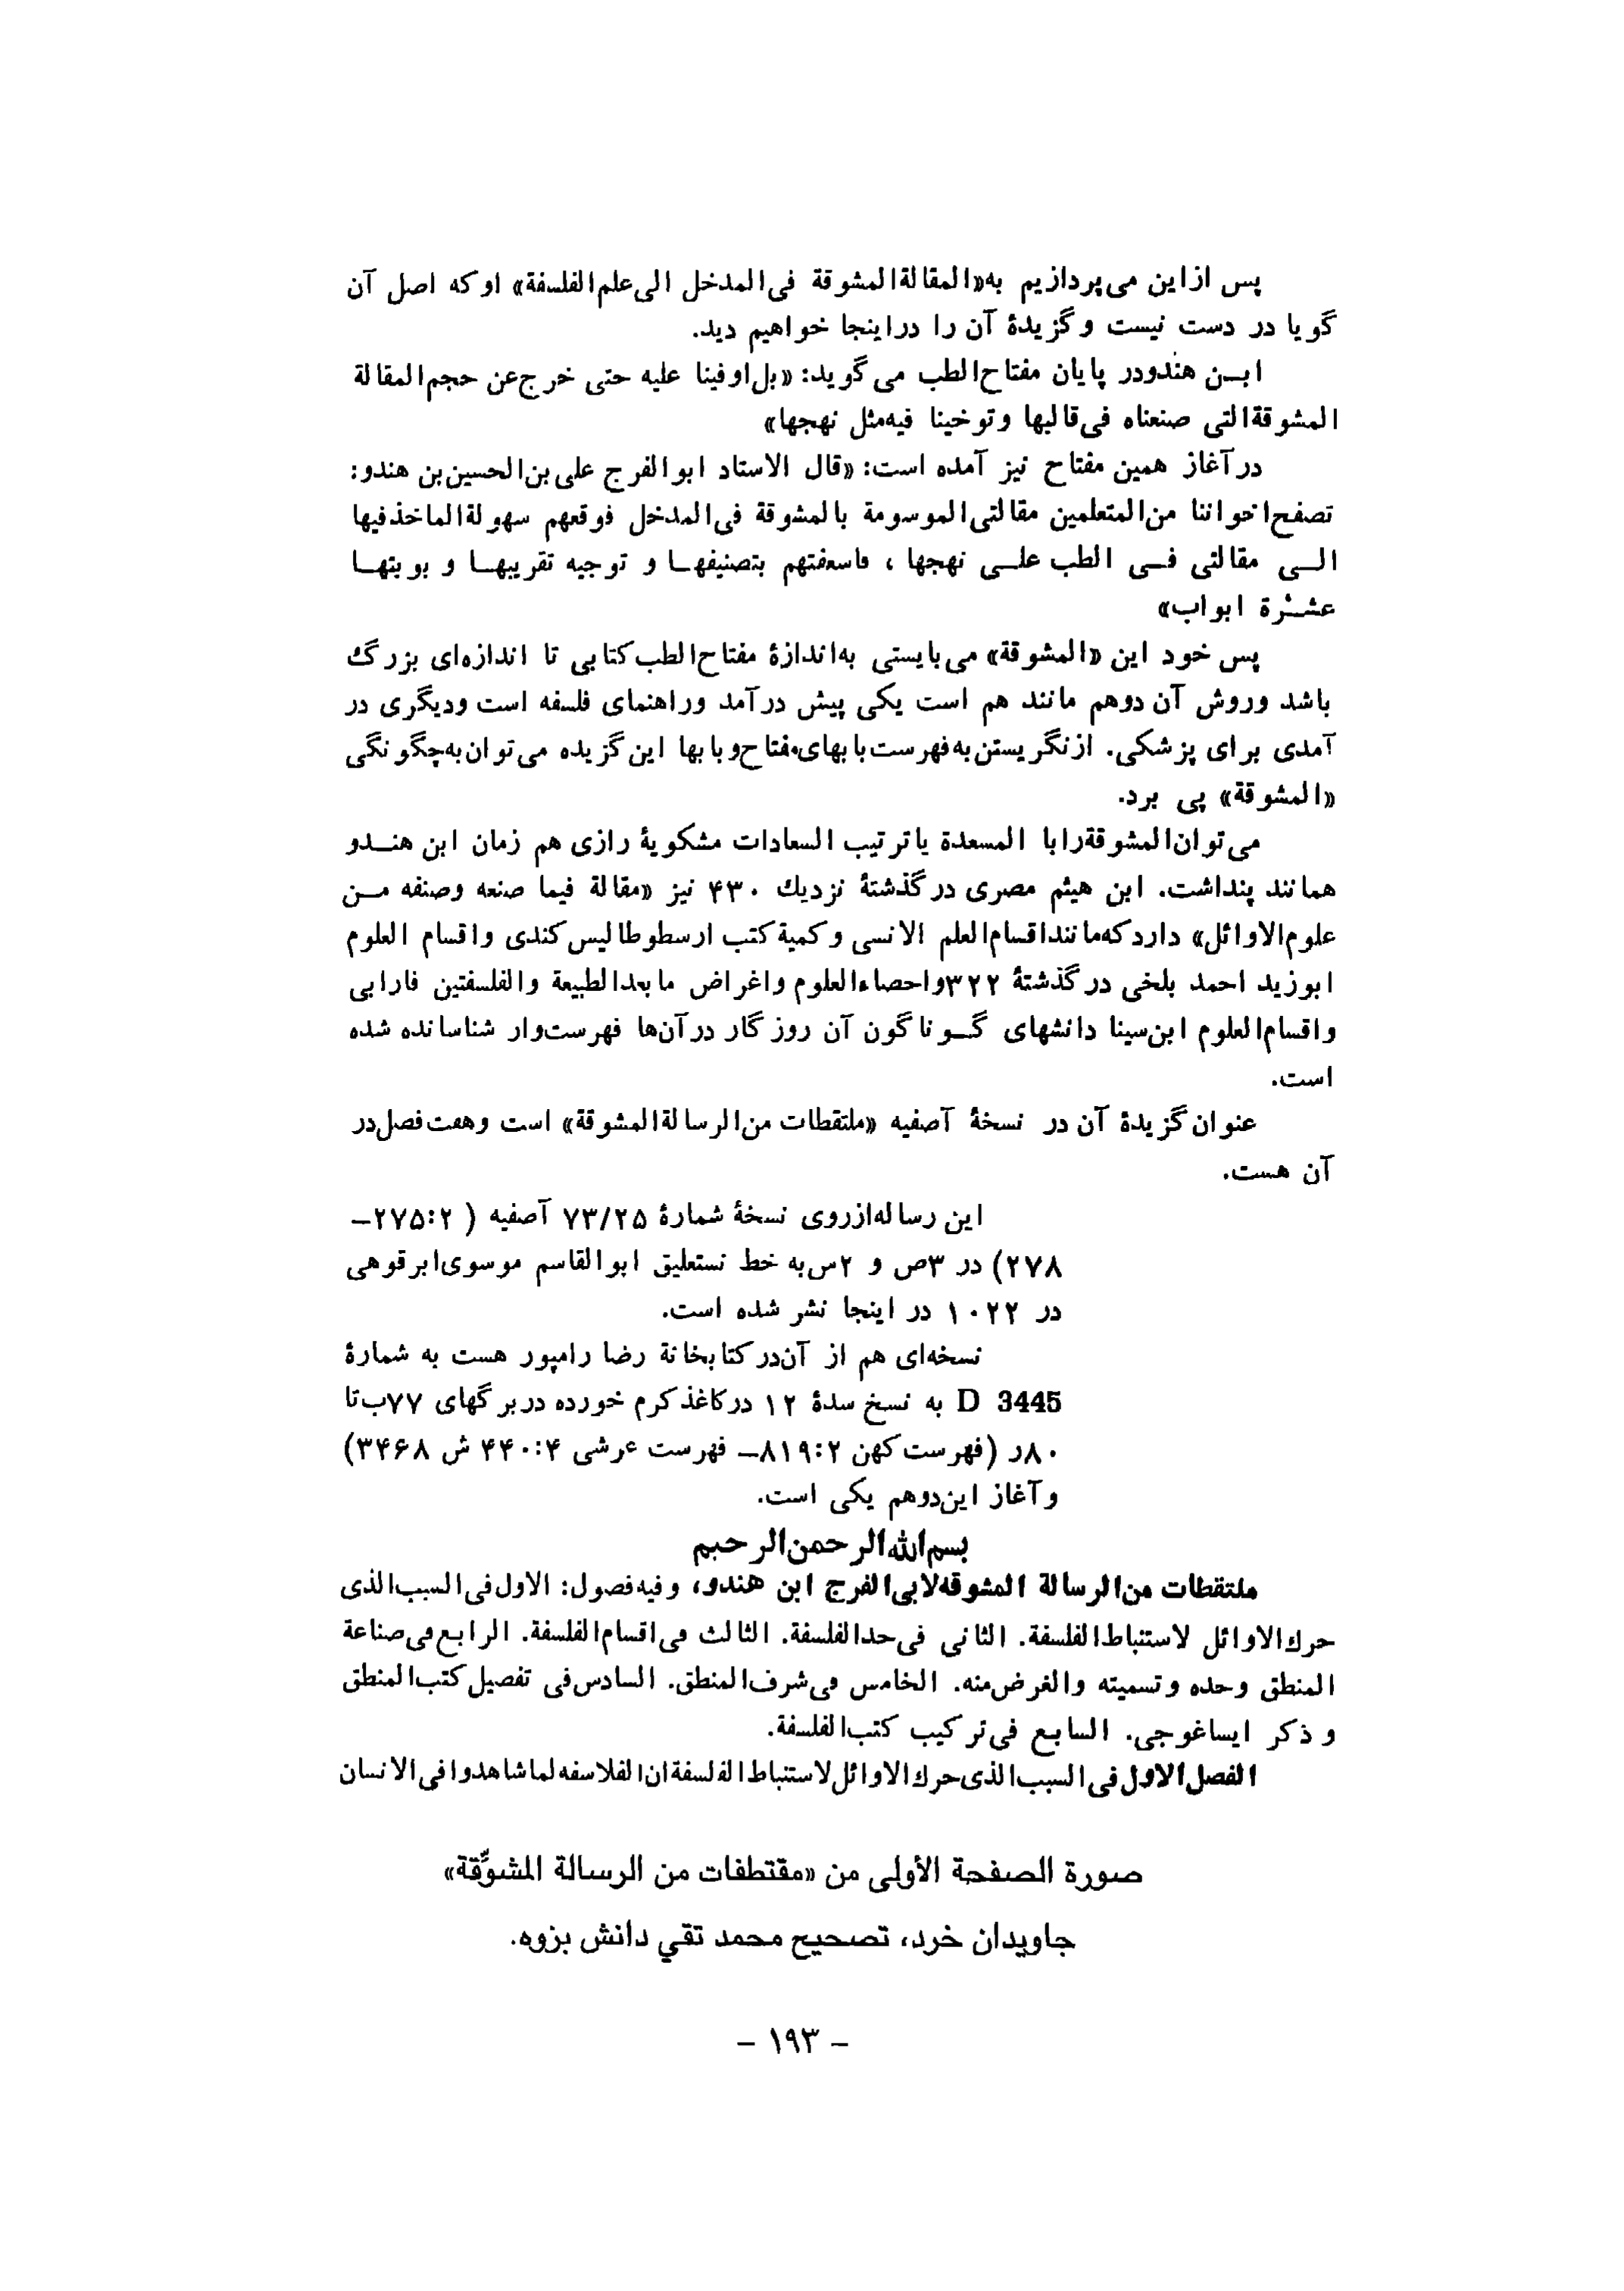 پس ازاین می‌پردازیم به«المقالةالمشوقة فی‌المدخل الی‌علم‌الفلسفة» اوکه اصل آن
گویا در دست نیست وگزیدهٔ آن را دراینجا خواهیم دید.
ابـن هندودر پایان مفتاح‌الطب می‌گوید: «بل‌اوفینا علیه حتی خرج‌عن حجم‌المقالة
المشوقةالتی صنعناه فی‌قالبها وتوخینا فیه‌مثل نهجها»
درآغاز همین مفتاح نیز آمده است: «قال الاستاد ابوالفرج علی‌بن‌الحسین‌بن هندو:
تصفح‌اخواننا من‌المتعلمین مقالتی‌الموسومة بالمشوقة فی‌المدخل فوقعهم سهولةالماخذفیها
الـی مقالتی فـی الطب علـی نهجها ، فاسعفتهم بتصنیفهـا و توجیه تقریبهـا و بوبتهـا
عشـرة ابواب»
پس خود این «المشوقة» می‌بایستی به‌اندازهٔ مفتاح‌الطب‌کتابی تا اندازه‌ای بزرگ
باشد وروش آن دوهم مانند هم است یکی پیش درآمد وراهنمای فلسفه است ودیگری در
آمدی برای پزشکی. ازنگریستن‌به‌فهرست‌بابهای‌مفتاح‌وبابها این‌گزیده می‌توان‌به‌چگونگی
«المشوقة» پی برد.
می‌توان‌المشوقةرابا المسعدة یاترتیب السعادات مشکویهٔ رازی هم زمان ابن هنـدو
همانند پنداشت. ابن هیثم مصری درگذشتهٔ نزدیك ۴۳۰ نیز «مقالة فیما صنعه وصنفه مـن
علوم‌الاوائل» داردکه‌مانند‌اقسام‌العلم الانسی وکمیة‌کتب ارسطوطالیس‌کندی واقسام العلوم
ابوزید احمد بلخی درگذشتهٔ ۳۲۲واحصاءالعلوم واغراض مابعدالطبیعة والفلسفتین فارابی
واقسام‌العلوم ابن‌سینا دانشهای گـوناگون آن روزگار درآن‌ها فهرست‌وار شناسانده شده
است.
عنوان‌گزیدهٔ آن در نسخهٔ آصفیه «ملتقطات من‌الرسالةالمشوقة» است وهفت‌فصل‌در
آن هست.
این رساله‌ازروی نسخهٔ شمارهٔ ۷۳/۲۵ آصفیه ( ۲۷۵:۲ـ
۲۷۸) در ۳ص و ۲س‌به خط نستعلیق ابوالقاسم موسوی‌ابرقوهی
در ۱۰۲۲ در اینجا نشر شده است.
نسخه‌ای هم از آن‌درکتابخانة رضا رامپور هست به شمارهٔ
D 3445 به نسخ سدهٔ ۱۲ درکاغذکرم خورده دربرگهای ۷۷ب‌تا
۸۰ر (فهرست‌کهن ۸۱۹:۲ـ فهرست عرشی ۴۴۰:۴ ش ۳۴۶۸)
وآغاز این‌دوهم یکی است.
بسم‌الله‌الرحمن‌الرحیم
ملتقطات من‌الرسالة المشوقه‌لابی‌الفرج ابن هندو، وفیه‌فصول: الاول‌فی‌السبب‌الذی
حرك‌الاوائل لاستنباط‌الفلسفة. الثانی فی‌حدالفلسفة. الثالث فی‌اقسام‌الفلسفة. الرابع‌فی‌صناعة
المنطق وحده وتسمیته والغرض‌منه. الخامس فی‌شرف‌المنطق. السادس‌فی تفصیل‌کتب‌المنطق
و ذکر ایساغوجی. السابع فی‌ترکیب کتب‌الفلسفة.
الفصل‌الاول‌فی‌السبب‌الذی‌حرك‌الاوائل‌لاستنباط‌الفلسفةان‌الفلاسفه‌لماشاهدوافی‌الانسان
صورة الصفحة الأولى من «مقتطفات من الرسالة المشوِّقة»
جاويدان خرد، تصحيح محمد تقي دانش بزوه.
- ١٩٣ -